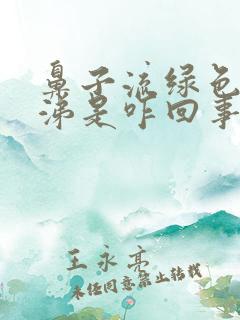 鼻子流绿色
涕是咋回事
王永亮
未经同意禁止转载